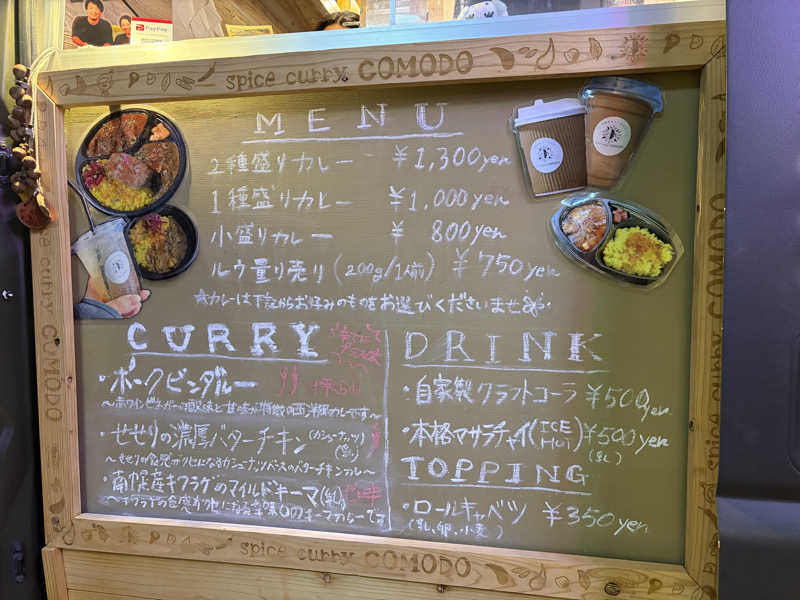 PayPay
spice curry COMODO
MENU
2種盛りカレー ¥1,300yen
1種盛りカレー ¥1,000yen
小盛りカレー ¥800yen
ルウ量り売り(200g/1人前) ¥750yen
☆カレーは下記からお好みのものをお選びくださいませ
CURRY
・ポークビンダルー
〜赤ワインビネガーの酸味と甘味が特徴の西洋風カレーです〜
・せせりの濃厚バターチキン(カシューナッツ)(乳)
〜せせりの食感がクセになるカシューナッツベースのバターチキンカレー〜
・南足産キクラゲのマイルドキーマ(乳)
DRINK
・自家製クラフトコーラ ¥500yen
・本格マサラチャイ(ICE HOT) ¥500yen
(乳)
TOPPING
・ロールキャベツ ¥350yen
(乳、卵、小麦)
spice curry COMODO
spice curry COMODO
spice curry COMODO